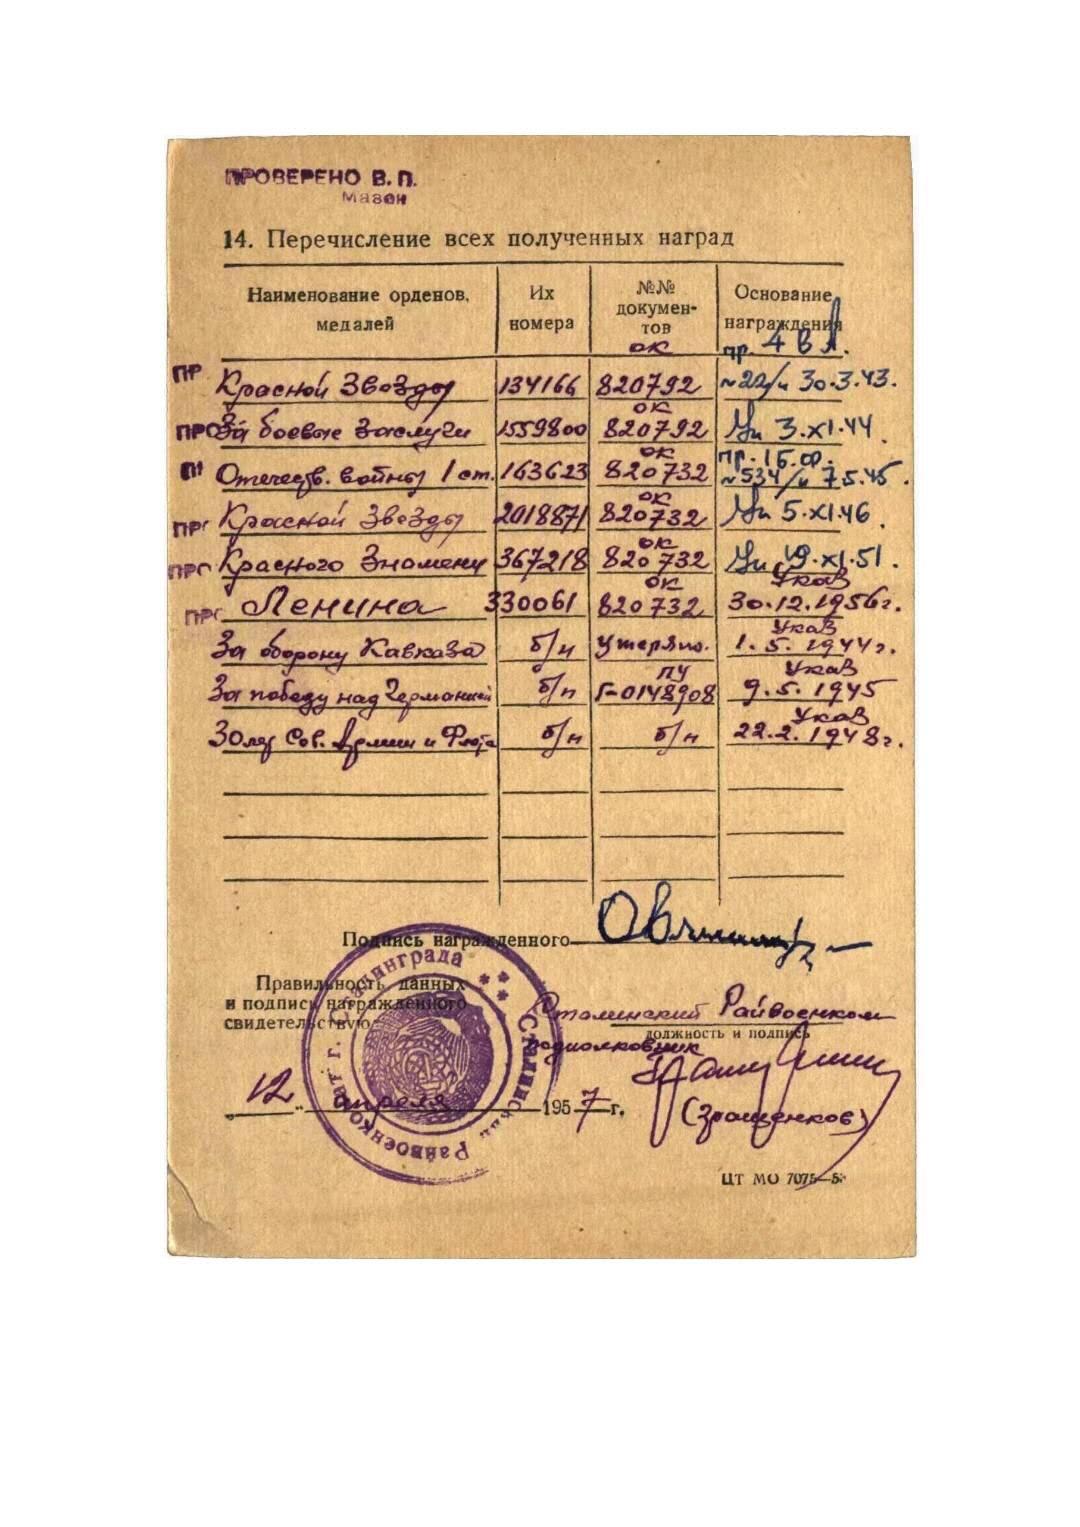 ПРОВЕРЕНО В. П.
Мазон
14. Перечисление всех полученных наград
Наименование орденов, медалей Их номера №№ документов Основание награждения
ПР Красной Звезды 134166 ОК 820792 пр. 4 ВА. №22/н 30.3.43.
ПРО За боевые заслуги 1559800 ОК 820792 Ук 3.XI.44.
ПР Отечеств. войны 1 ст. 163623 ОК 820732 пр. №534/н 7.5.45.
ПРО Красной Звезды 2018871 ОК 820732 Ук 5.XI.46.
ПРО Красного Знамени 367218 ОК 820732 Ук 19.XI.51.
ПРО Ленина 330061 ОК 820732 Указ 30.12.1956г.
За оборону Кавказа б/н утеряно. Указ 1.5.1944г.
За победу над Германией б/н ПУ Г-0148908 Указ 9.5.1945
30 лет Сов. Армии и Флота б/н б/н Указ 22.2.1948г.
Подпись награжденного
Правильность данных
и подписи награжденного
свидетельствую:
Сталинский Райвоенком
должность и подпись
подполковник
12 апреля 1957 г.
(Зращенков)
Сталинский Райвоенкомат г. Сталинграда
ЦТ МО